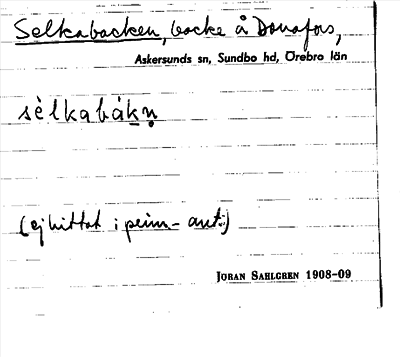 Selkabacken, backe å Donafors,
Askersunds sn, Sundbo hd, Örebro län
sèlkabákṇ
(ej hittat i prim-ant.)
JÖRAN SAHLGREN 1908-09